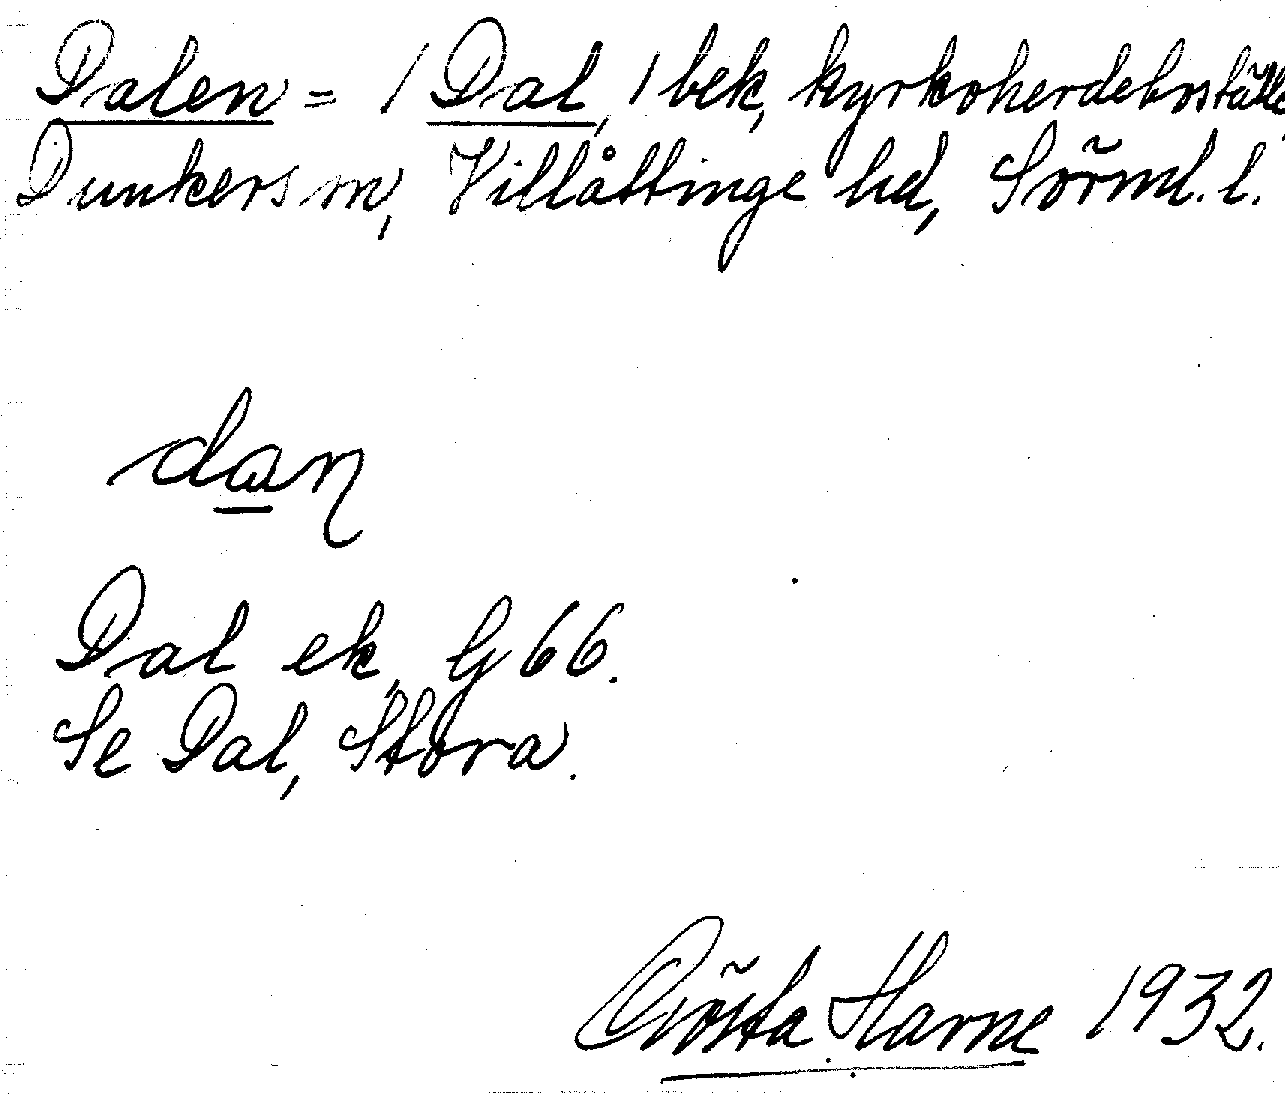 Dalen = / Dal, 1 bek, kyrkoherdeboställe,
Dunkers sn, Villåttinge hd, Sörml. l.
dan
Dal ek, G 66.
Se Dal, Stora.
Gösta Harne 1932.